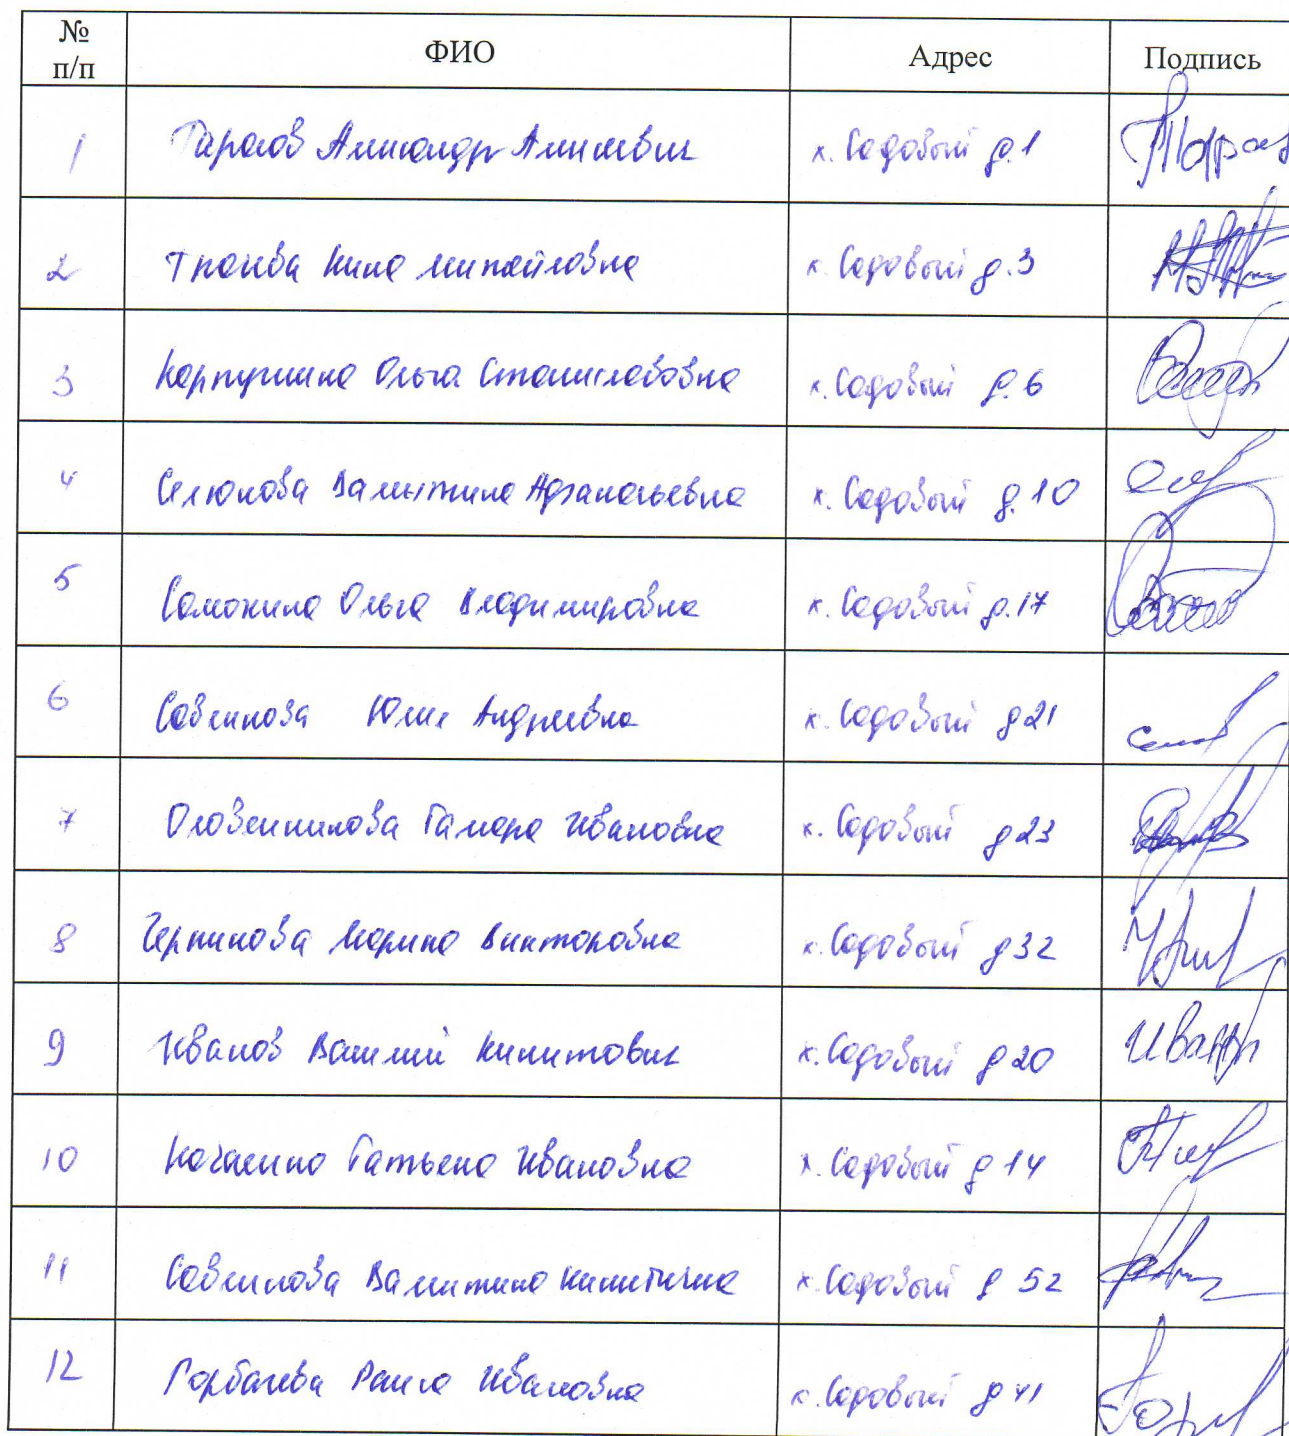 № п/п ФИО Адрес Подпись
1 Тарасов Александр Алексеевич х. Садовый д.1 Тарас
2 Нина Михайловна х. Садовый д.3
3 Карпушина Ольга Станиславовна х. Садовый д.6
4 Селюкова Валентина Афанасьевна х. Садовый д.10
5 Самохина Ольга Владимировна х. Садовый д.17
6 Савенкова Юлия Андреевна х. Садовый д 21
7 Оловенникова Тамара Ивановна х. Садовый д 23
8 Черникова Марина Викторовна х. Садовый д 32
9 Иванов Василий Никитович х. Садовый д 20 Иванов
10 Татьяна Ивановна х. Садовый д 14
11 Савенкова Валентина Никитична х. Садовый д 52
12 Горбачева Раиса Ивановна х. Садовый д 41